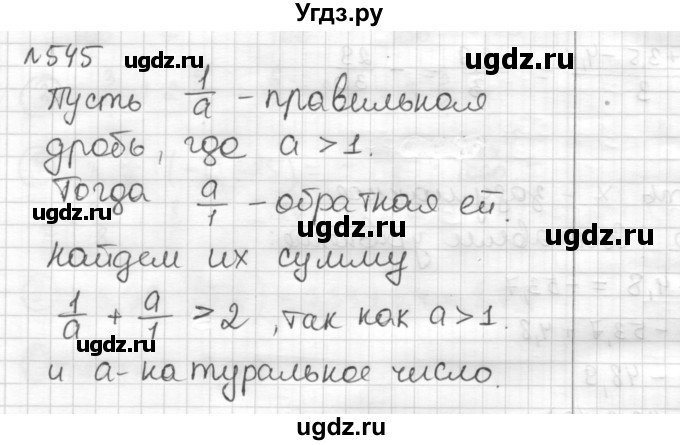 Угдз.ру
№545
Пусть 1/a - правильная
дробь, где a > 1.
Тогда a/1 - обратная ей.
найдем их сумму
1/a + a/1 > 2, так как a > 1.
и a - натуральное число.
ugdz.ru
ugdz.ru
ugdz.ru
ugdz.ru
ugdz.ru
ugdz.ru
ugdz.ru
ugdz.ru
ugdz.ru
ugdz.ru
ugdz.ru